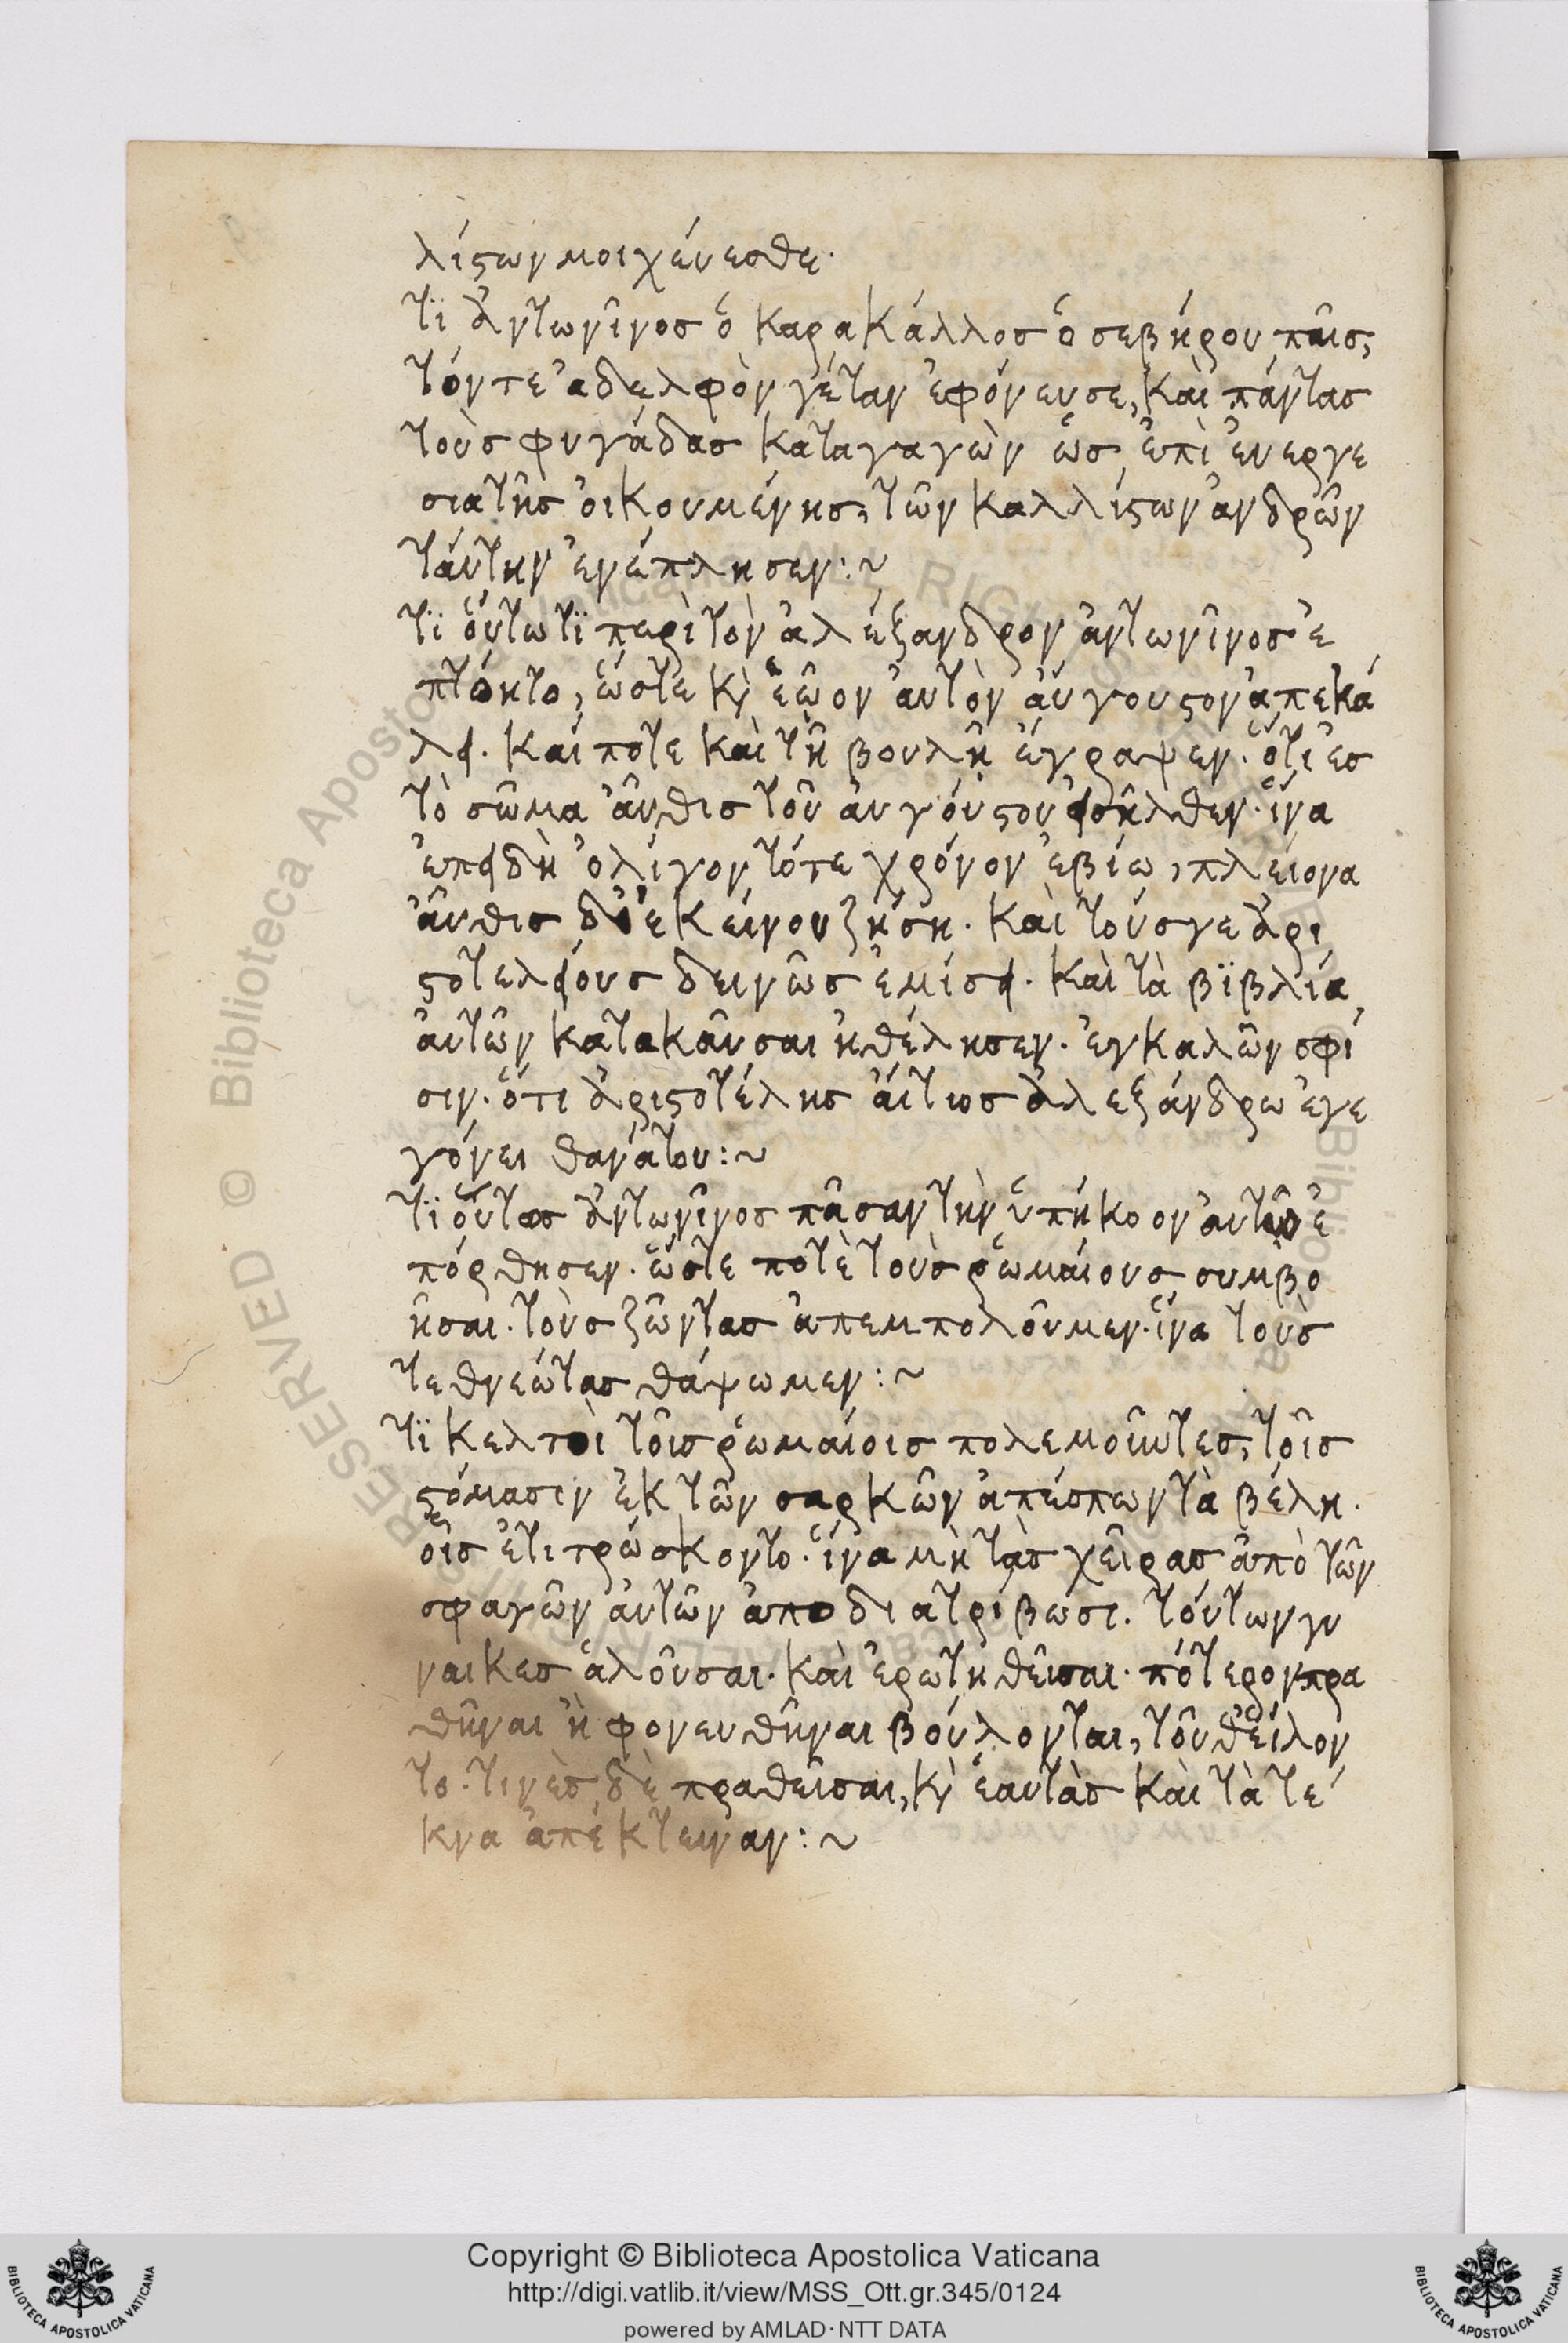 λίϛων μοιχέυεσθε·
τϊ ἀντωνῖνοσ ὁ καρακάλλοσ ὁ σεβήρου πᾶισ,
τόντε ἀδελφὸν γέταν ἐφόνευσε, καὶ πάντασ
τοὺσ φυγάδασ καταγαγὼν ὡσ ἐπὶ ἐυεργε
σια τῆσ ὀικουμένησ, τῶν καλλίϛων ἀνδρῶν
τάυτην ἐνέπλησεν:~
τϊ ὅυτω τϊ περὶ τὸν ἀλέξανδρον ἀντωνῖνοσ ἐ
πτόητο, ὥστε κỳ ἑῶον ἀυτὸν ἄυγουϛον ἀπεκά
λει. καί ποτε καὶ τῆ βουλῆ ἔγραψεν. ὅτι ἐσ
τὸ σῶμα ἆυθισ τοῦ ἀυγόυϛου εἰσῆλθεν. ἵνα
ἐπειδὴ ὀλίγον τότε χρόνον ἐβίω, πλείονα
ἆυθισ δι' ἐκείνου ζήση. καὶ τούσγε ἀρι
ϛοτελείουσ δεινῶσ ἐμίσει. καὶ τὰ βϊβλία
ἀυτῶν κατακᾶυσαι ἠθέλησεν. ἐγκαλῶν σφί
σιν. ὅτι ἀριϛοτέλησ ἄιτιοσ ἀλεξάνδρω ἐγε
γόνει θανάτου:~
τϊ οὕτοσ ἀντωνῖνοσ πᾶσαν τὴν ὑπήκοον ἀυτῶ ἐ
πόρθησεν. ὥστε ποτὲ τοὺσ ῥωμαίουσ συμβο
ῆσαι. τοὺσ ζῶντασ ἀπεμπολοῦμεν. ἵνα τοὺσ
τεθνεώτασ θάψωμεν:~
τϊ κελτοὶ τοῖσ ῥωμαίοισ πολεμοῦντεσ, τοῖσ
ϛόμασιν ἐκ τῶν σαρκῶν ἀπέσπων τὰ βέλη.
οἷσ ἐτιτρώσκοντο. ἵνα μὴ τὰσ χεῖρασ ἀπὸ τῶν
σφαγῶν ἀυτῶν ἀποδιατρίβωσι. τούτων γυ
ναικεσ ἁλοῦσαι. καὶ ἐρωτηθεῖσαι. πότερον πρα
θῆναι ἢ φονευθῆναι βούλονται, τοῦθ' ἕιλον
το. τινὲσ δὲ πραθεῖσαι, κỳ ἑαυτὰσ καὶ τὰ τέ
κνα ἀπέκτειναν:~
Copyright © Biblioteca Apostolica Vaticana
http://digi.vatlib.it/view/MSS_Ott.gr.345/0124
powered by AMLAD·NTT DATA